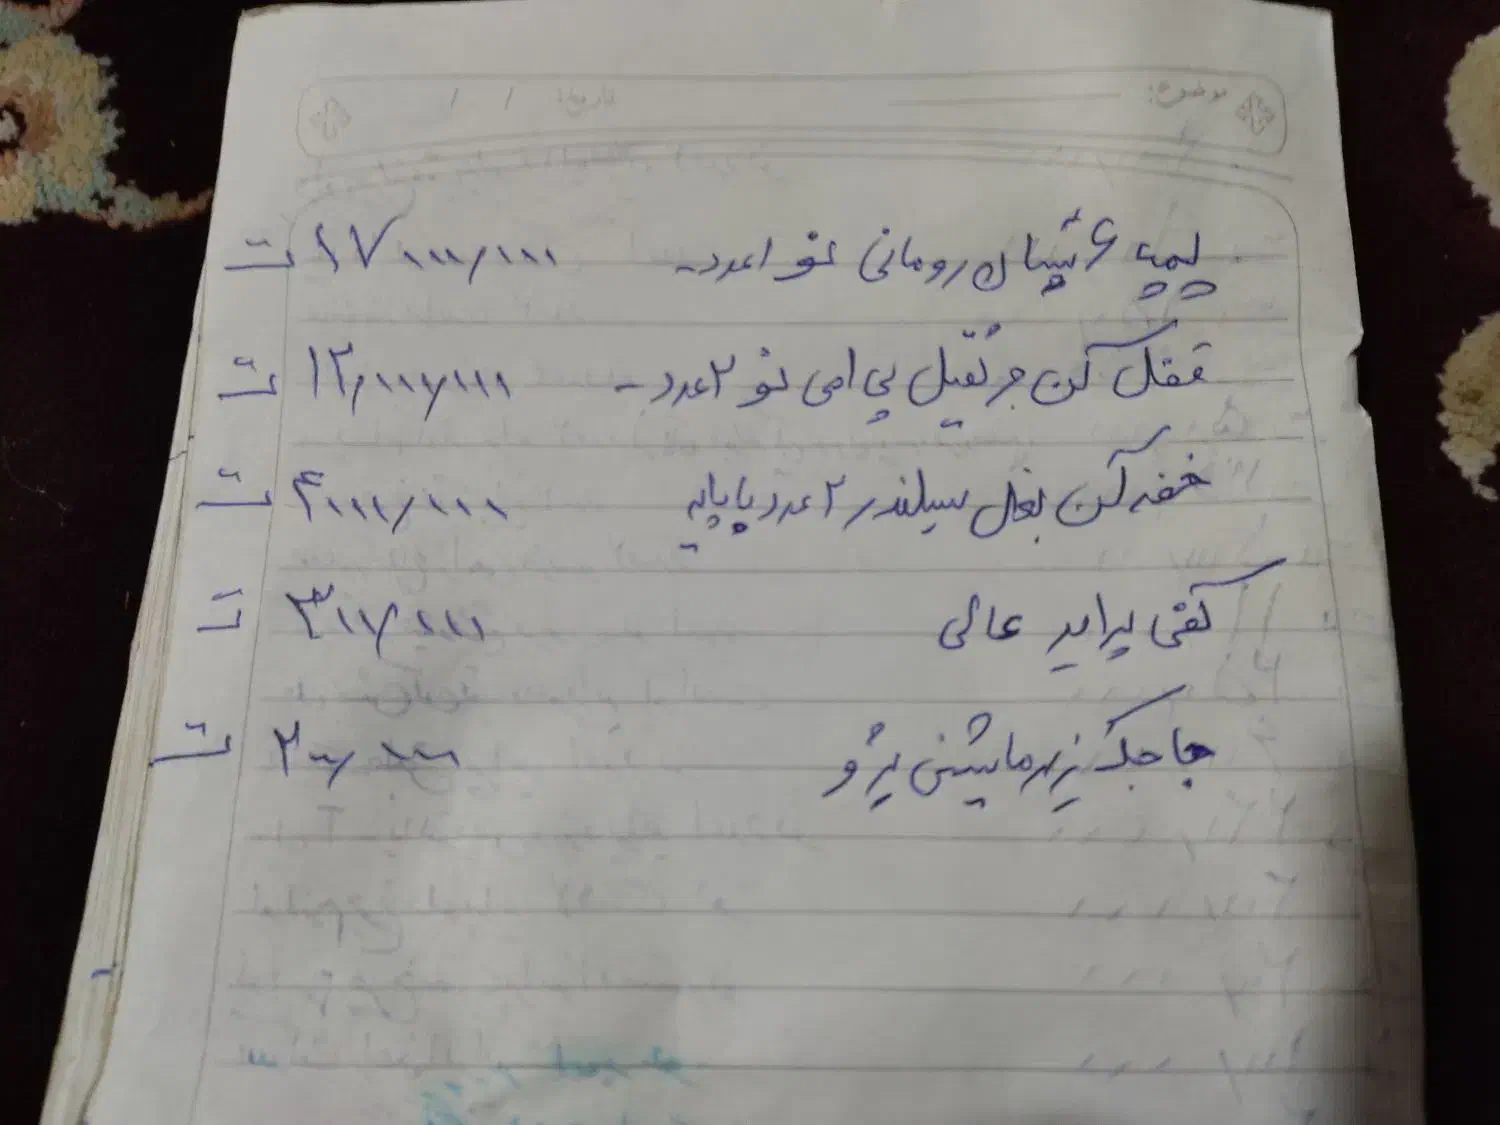 موضوع: تاریخ: / /
پمپ ۶ پستان رومانی نو ۱عدد - ۱۷۰۰۰/۰۰۰ ت
قفل کن جرثقیل پی ام نو ۲عدد - ۱۲/۰۰۰/۰۰۰ ت
خفه کن بغل سیلندر ۲عدد با پایه ۴۰۰۰/۰۰۰ ت
کفی پراید عالی ۳۰۰/۰۰۰ ت
جا جک زیر ماشینی پژو ۲۰۰/۰۰۰ ت